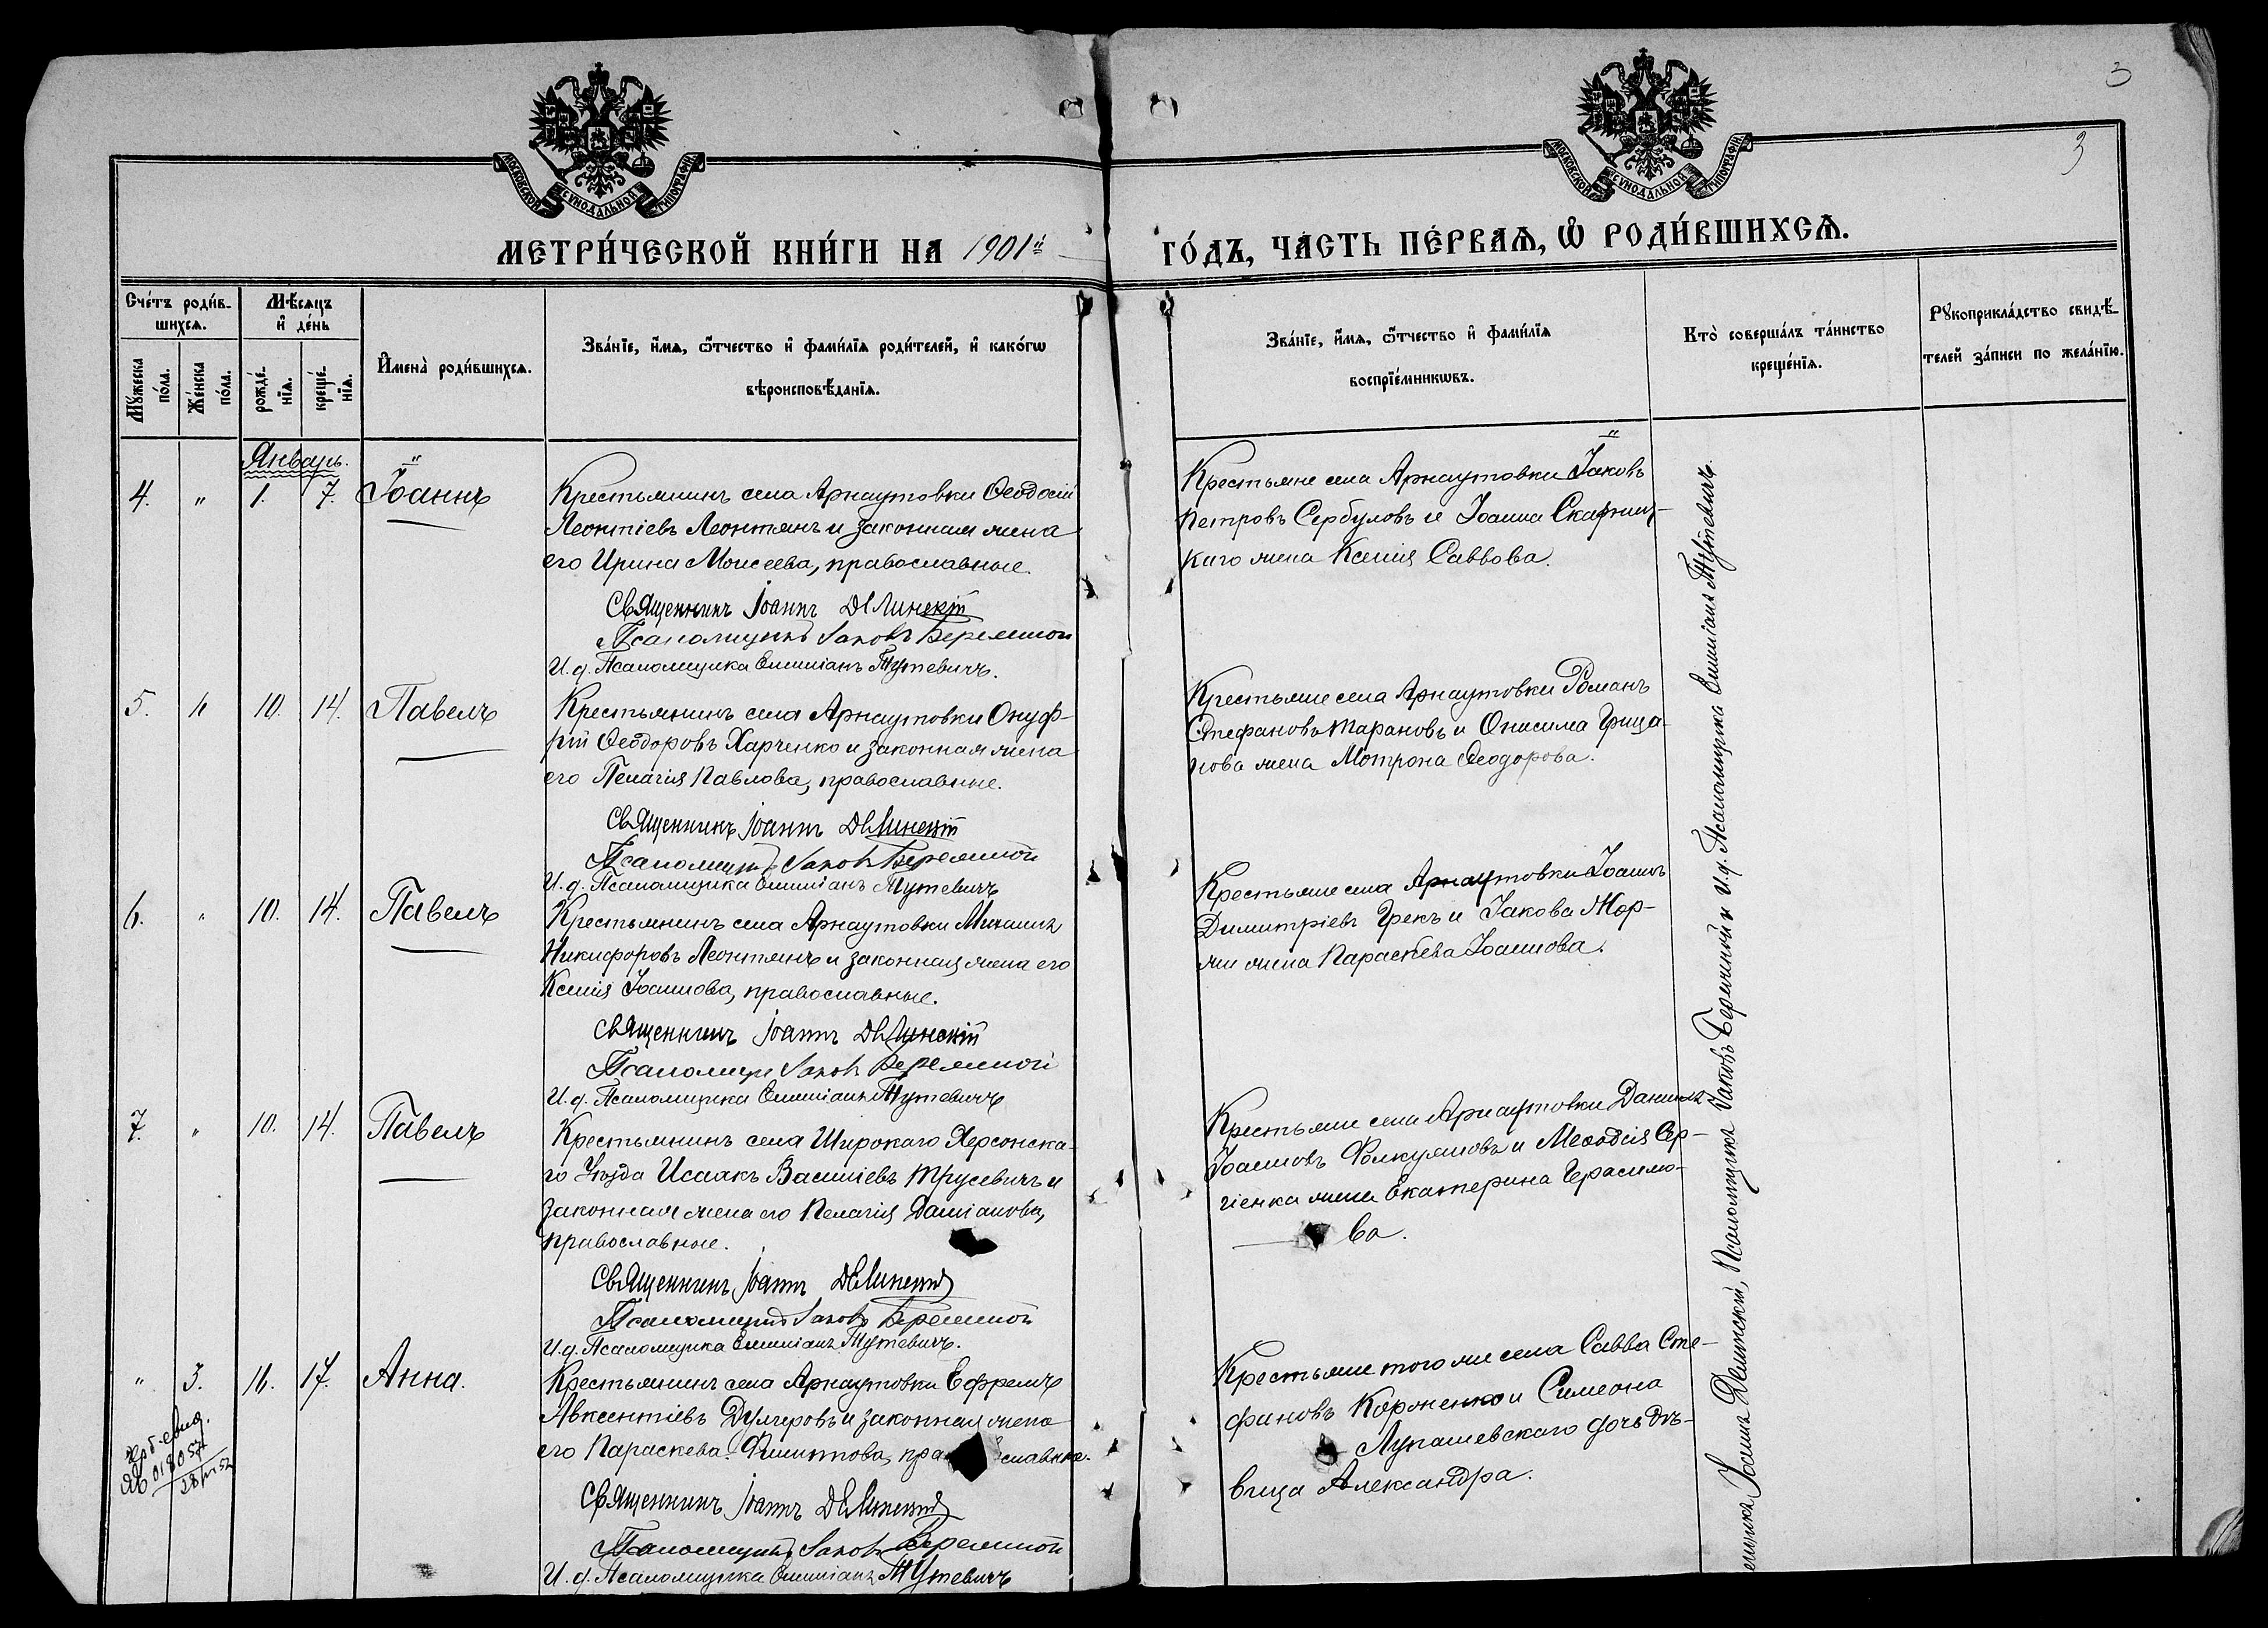 3
3
МОСКОВСКОЙ СѴНОДАЛЬНОЙ ТИПОГРАФІИ
МОСКОВСКОЙ СѴНОДАЛЬНОЙ ТИПОГРАФІИ
МЕТРИ́ЧЕСКОЙ КНИ́ГИ НА 1901й ГО́ДЪ, ЧА́СТЬ ПЕ́РВАѦ, Ѡ҆ РОДИ́ВШИХСѦ.
Сче́тъ роди́в-
шихсѧ.
Мꙋ́жеска по́ла.
Же́нска по́ла.
Мѣ́сѧцъ
и҆ де́нь
рожде́-
нїѧ.
креще́-
нїѧ.
И҆мена̀ роди́вшихсѧ.
Зва́нїе, и҆́мѧ, ѻ҆́тчество и҆ фами́лїѧ роди́телей, и҆ како́гѡ
вѣроисповѣ́данїѧ.
Зва́нїе, и҆́мѧ, ѻ҆́тчество и҆ фами́лїѧ
воспрїе́мникѡвъ.
Кто̀ соверша́лъ та́инство
креще́нїѧ.
Рꙋкоприкла́дство свидѣ́-
телей за́писи по жела́нїю.
Январь.
4. " 1. 7. Іоаннъ
Крестьянинъ села Арнаутовки Ѳеодосій
Леонтіевъ Леонтянъ и законная жена
его Ирина Моисеева, православные.
Священникъ Іоаннъ Двлинскій
Псаломщикъ Іаковъ Бережной
И.д. Псаломщика Емиліанъ Тутевичъ.
Крестьяне села Арнаутовки Іаковъ
Петровъ Сербуловъ и Іоанна
каго жена Ксенія Саввова.
5. " 10. 14. Павелъ
Крестьянинъ села Арнаутовки Онуф-
рій Ѳеодоровъ Харченко и законная жена
его Пелагія Павлова, православные.
Священникъ Іоаннъ Двлинскій
Псаломщикъ Іаковъ Бережной
И.д. Псаломщика Емиліанъ Тутевичъ
Крестьяне села Арнаутовки Романъ
Стефановъ Тарановъ и Онисима Грица-
нова жена Мотрона Ѳеодорова.
6. " 10. 14. Павелъ
Крестьянинъ села Арнаутовки Михаилъ
Никифоровъ Леонтянъ и законная жена его
Ксенія Іоаннова, православные.
Священникъ Іоаннъ Двлинскій
Псаломщикъ Іаковъ Бережной
И.д. Псаломщика Емиліанъ Тутевичъ
Крестьяне села Арнаутовки Іоаннъ
Димитріевъ Грекъ и Іакова Жор-
жи жена Параскева Іоаннова.
7. " 10. 14. Павелъ
Крестьянинъ села Широкаго Херсонска-
го Уѣзда Исаакъ Василіевъ Трусевичъ и
законная жена его Пелагія Даміанова,
православные.
Священникъ Іоаннъ Двлинскій
Псаломщикъ Іаковъ Бережной
И.д. Псаломщика Емиліанъ Тутевичъ.
Крестьяне села Арнаутовки Даніилъ
Іоанновъ и Меѳодія Сер-
гіенка жена Екатерина Герасимо-
ва.
" 3. 16. 17. Анна.
Крестьянинъ села Арнаутовки Ефремъ
Авксентіевъ Дулгеровъ и законная жена
его Параскева Филиппова, православные.
Священникъ Іоаннъ Двлинскій
Псаломщикъ Іаковъ Бережной
И.д. Псаломщика Емиліанъ Тутевичъ
Крестьяне того же села Савва Сте-
фановъ Короненко и Симеона
Лукашевскаго дочь дѣ-
вица Александра.
Іоаннъ Двлинскій, Псаломщикъ Іаковъ Бережной и И.д. Псаломщика Емиліанъ Тутевичъ.